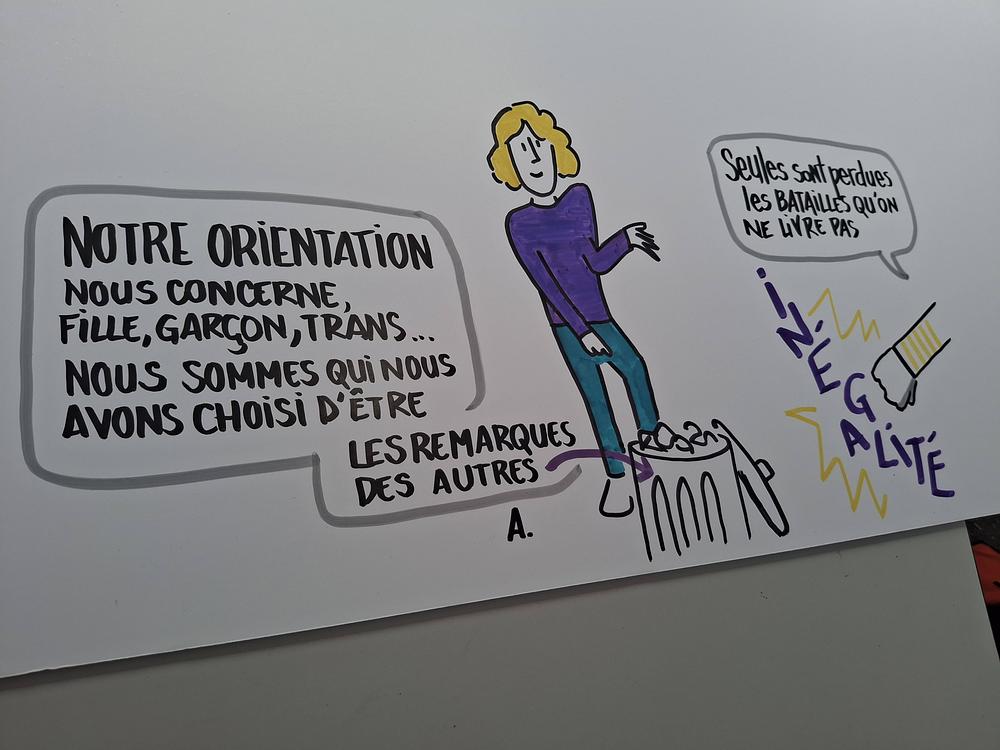 NOTRE ORIENTATION
NOUS CONCERNE,
FILLE, GARÇON, TRANS...
NOUS SOMMES QUI NOUS
AVONS CHOISI D'ÊTRE
LES REMARQUES
DES AUTRES
A.
Seules sont perdues
les BATAILLES QU'ON
NE LIVRE PAS
iNÉGALITÉ